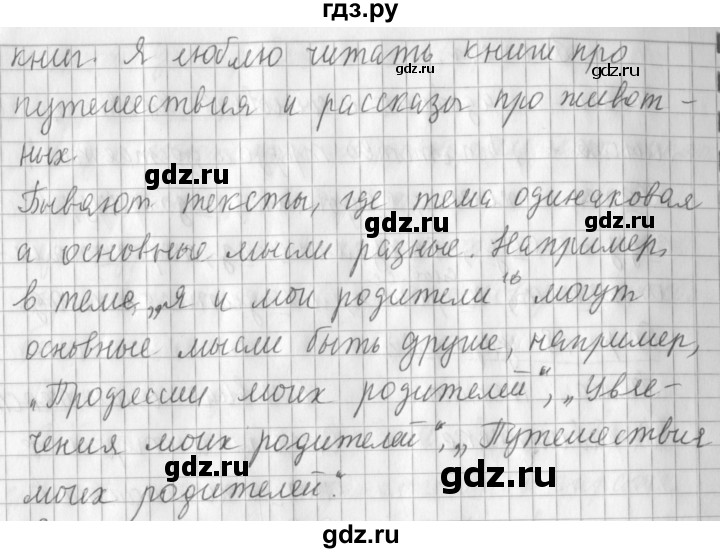 гдз.ру
книг. Я люблю читать книги про
gdz.ru
gdz.ru
путешествия и рассказы про живот-
ных.
gdz.ru
Бывают тексты, где тема одинаковая
gdz.ru
gdz.ru
а основные мысли разные. Например,
в теме „Я и мои родители" могут
gdz.ru
основные мысли быть другие, например,
„Продгессии моих родителей“, „Увле-
gdz.ru
gdz.ru
чения моих родителей“, „Путешествия
gdz.ru
моих родителей.“
gdz.ru
gdz.ru